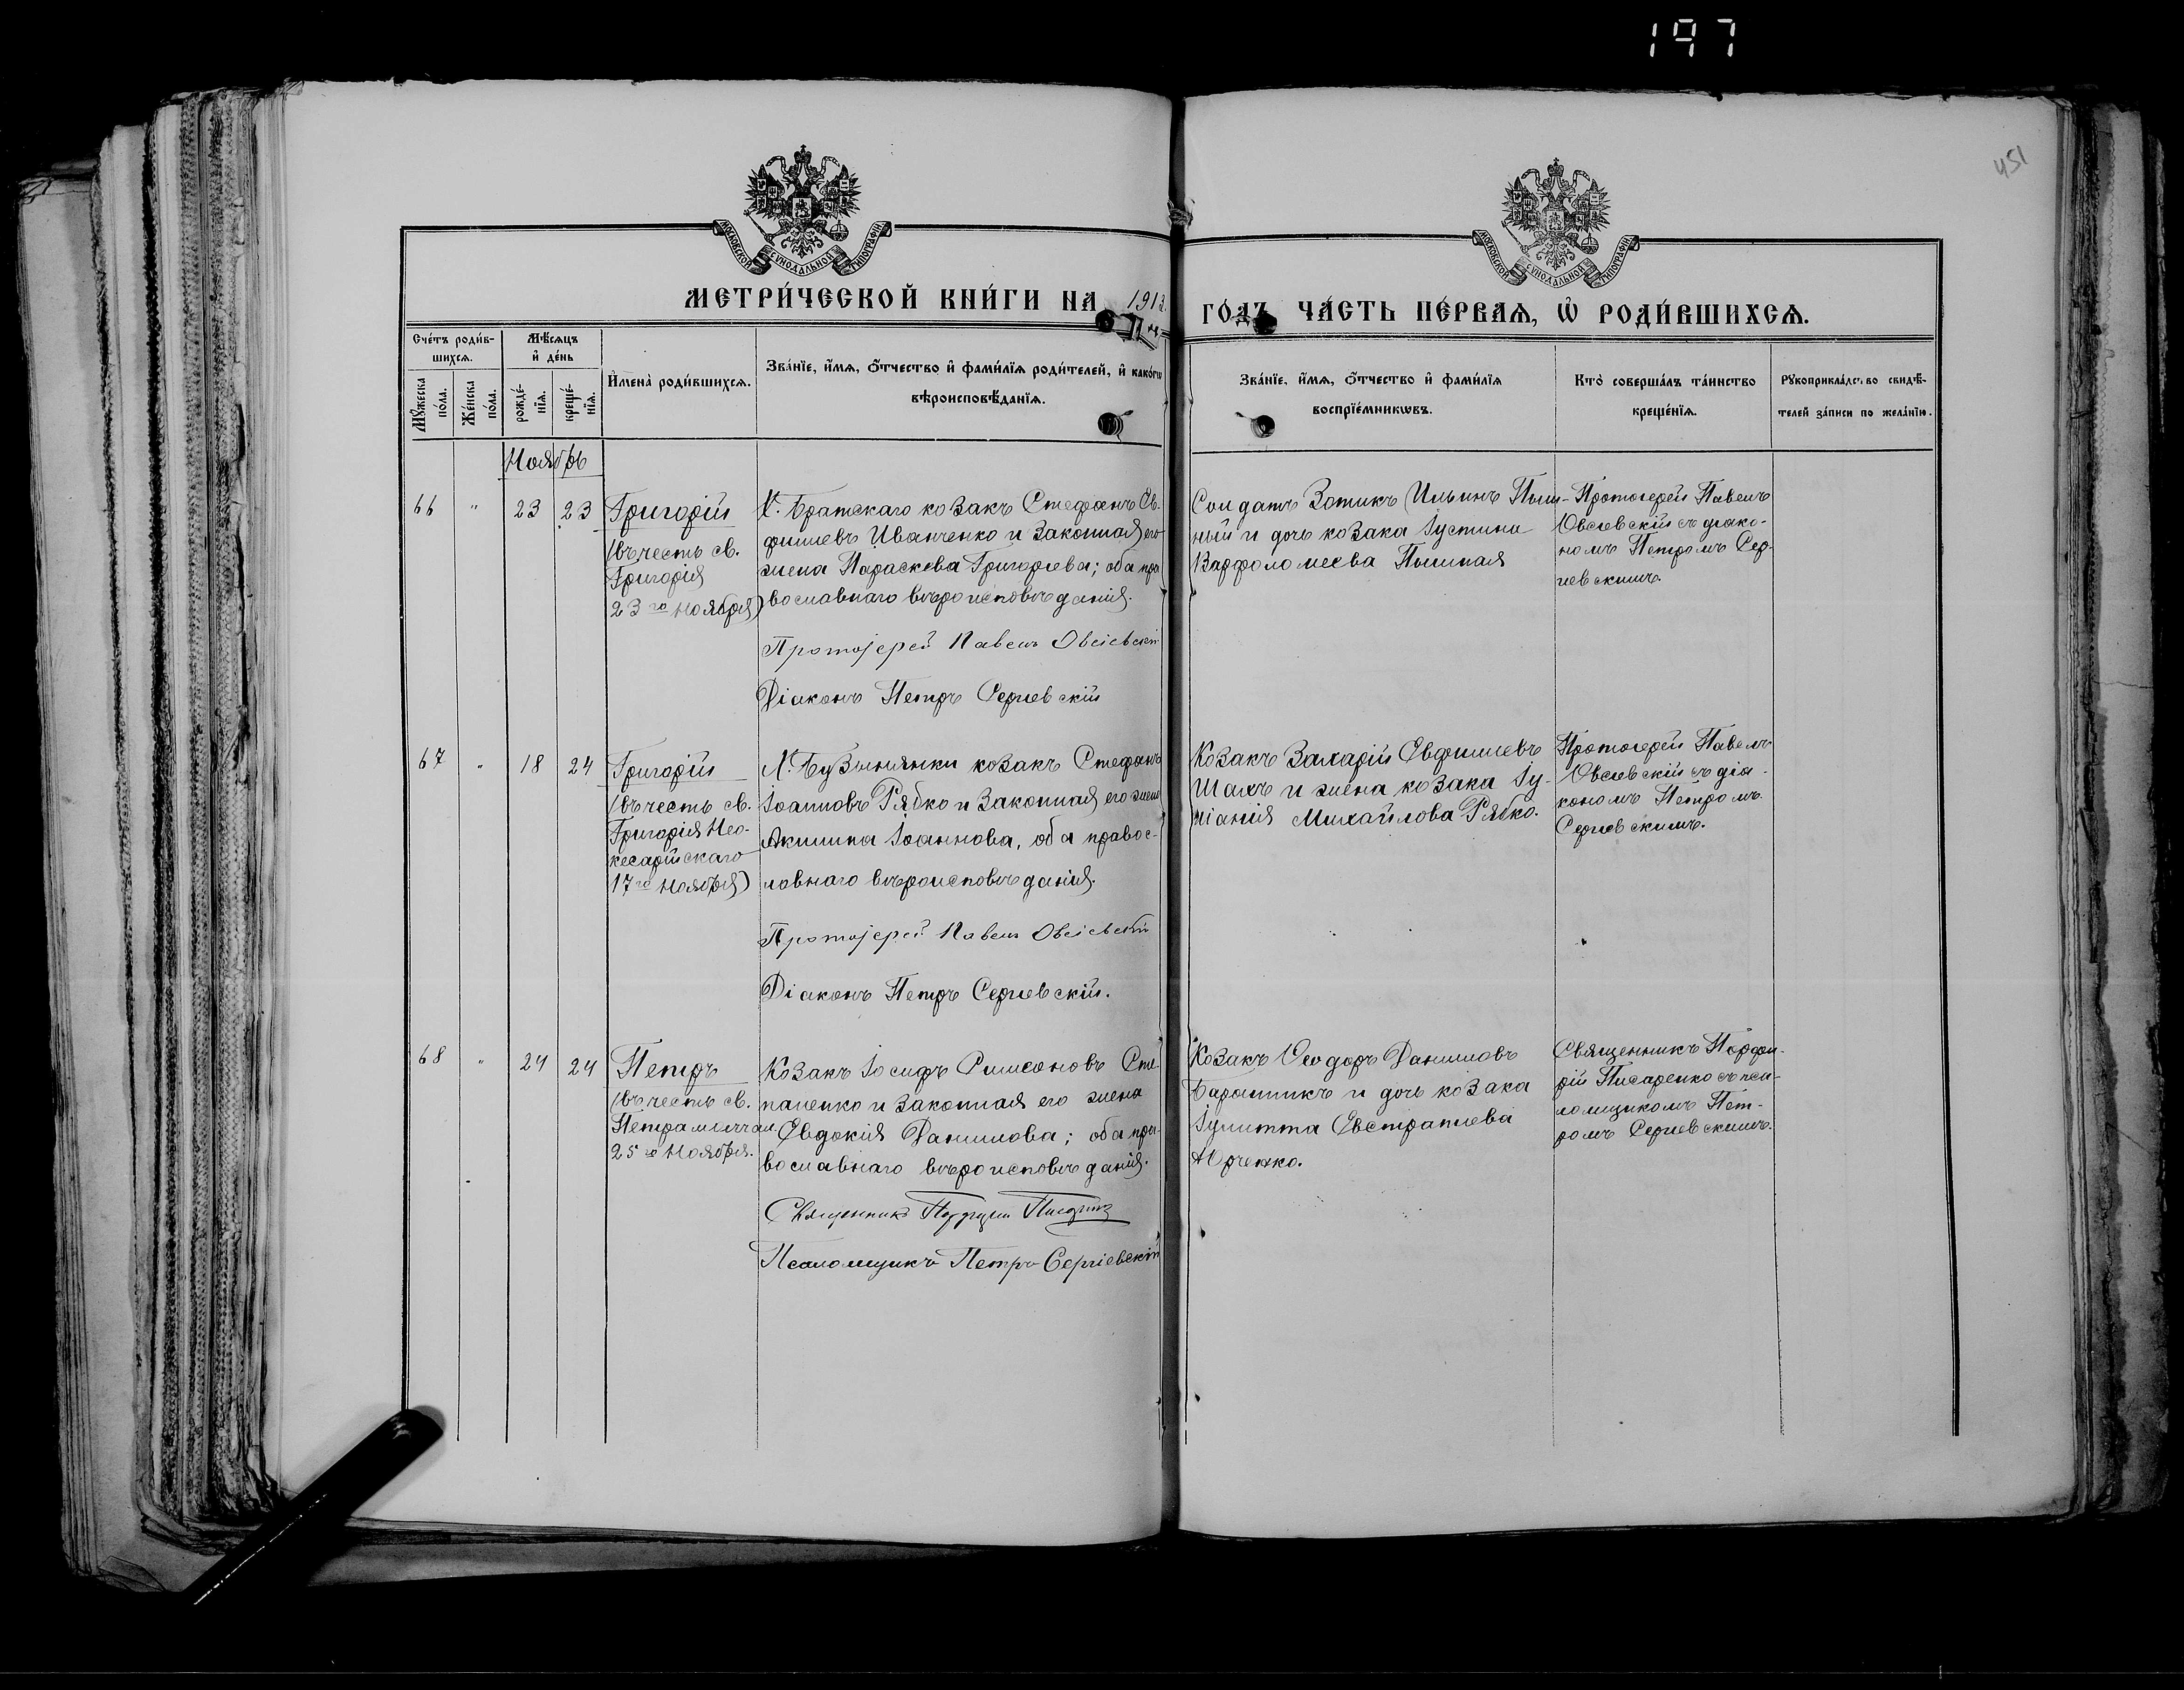 197
451
МОСКОВСКОЙ СѴНОДАЛЬНОЙ ТИПОГРАФІИ
МОСКОВСКОЙ СѴНОДАЛЬНОЙ ТИПОГРАФІИ
МЕТРИ́ЧЕСКОЙ КНИ́ГИ НА 1913
ГО́ДЪ ЧА́СТЬ ПЕ́РВАѦ, Ѡ҆ РОДИ́ВШИХСѦ.
Сче́тъ роди́в-
шихсѧ.
Мꙋ́жеска по́ла.
Же́нска по́ла.
Мѣ́сѧцъ
и҆ де́нь
рожде́-
нїѧ.
креще́-
нїѧ.
И҆мена̀ роди́вшихсѧ.
Зва́нїе, и҆́мѧ, ѻ҆́тчество и҆ фами́лїѧ роди́телей, и҆ како́гѡ
вѣроисповѣ́данїѧ.
Зва́нїе, и҆́мѧ, ѻ҆́тчество и҆ фами́лїѧ
воспрїе́мникѡвъ.
Кто̀ соверша́лъ та́инство
креще́нїѧ.
Рꙋкоприкла́дство свидѣ́-
телей за́писи по жела́нїю.
Ноябрь
66 " 23 23
Григорій
(въ честь св.
Григорія
23го ноября)
Х. Братскаго козакъ Стефанъ Ев-
фиміевъ Иванченко и законная его
жена Параскева Григорьева; оба пра
вославнаго вѣроисповѣданія.
Протоіерей Павелъ Овсіевскій
Діаконъ Петръ Сергіевскій
Солдатъ Зотикъ Ильинъ Пыш-
ный и дочь козака Іустина
Варфоломеева Пышная
Протоіерей Павелъ
Овсіевскій съ діако-
номъ Петромъ Сер-
гіевскимъ.
67 " 18 24
Григорій
(въ честь св.
Григорія Нео-
кесарійскаго
17го ноября)
козакъ Стефанъ
Іоанновъ Рябко и законная его жена
Акилина Іоаннова, оба правос-
лавнаго вѣроисповѣданія.
Протоіерей Павелъ Овсіевскій
Діаконъ Петръ Сергіевскій.
Козакъ Захарій Евфиміевъ
Шахъ и жена козака Іу-
ліанія Михайлова Рябко.
Протоіерей Павелъ
Овсіевскій съ діа-
кономъ Петромъ
Сергіевскимъ.
68 " 24 24
Петръ
(въ честь св.
Петра
25го Ноября.
Козакъ Іосифъ Симеоновъ Сте-
паненко и законная его жена
Евдокія Даніилова; оба пра-
вославнаго вѣроисповѣданія.
Священникъ
Псаломщикъ Петръ Сергіевскій
Козакъ Ѳеодоръ Даніиловъ
Баранникъ и дочь козака
Іулитта Евстратіева
Юрченко.
Священникъ Порфи-
рій Писаренко съ пса-
ломщикомъ Пет-
ромъ Сергіевскимъ.